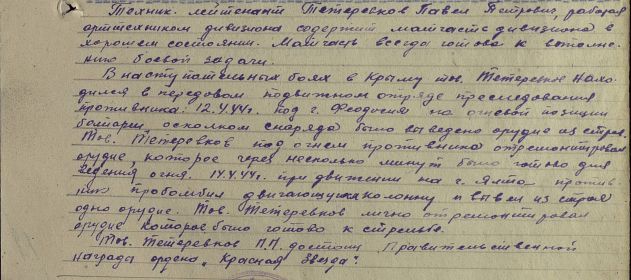 Техник-лейтенант Тетеревков Павел Петрович, работая
арттехником дивизиона содержит матчасть дивизиона в
хорошем состоянии. Матчасть всегда готова к выполне-
нию боевой задачи.
В наступательных боях в Крыму тов. Тетеревков нахо-
дился в передовом подвижном отряде преследования
противника. 12.4.44г. под г. Феодосия на огневой позиции
батареи, осколком снаряда было выведено орудие из строя.
Тов. Тетеревков под огнем противника отремонтировал
орудие, которое через несколько минут было готово для
ведения огня. 14.4.44г. при движении на г. Ялта против-
ник пробомбил двигающуюся колонну и вывел из строя
одно орудие. Тов. Тетеревков лично отремонтировал
орудие которое было готово к стрельбе.
Тов. Тетеревков П.П. достоин Правительственной
награды ордена „Красная Звезда".